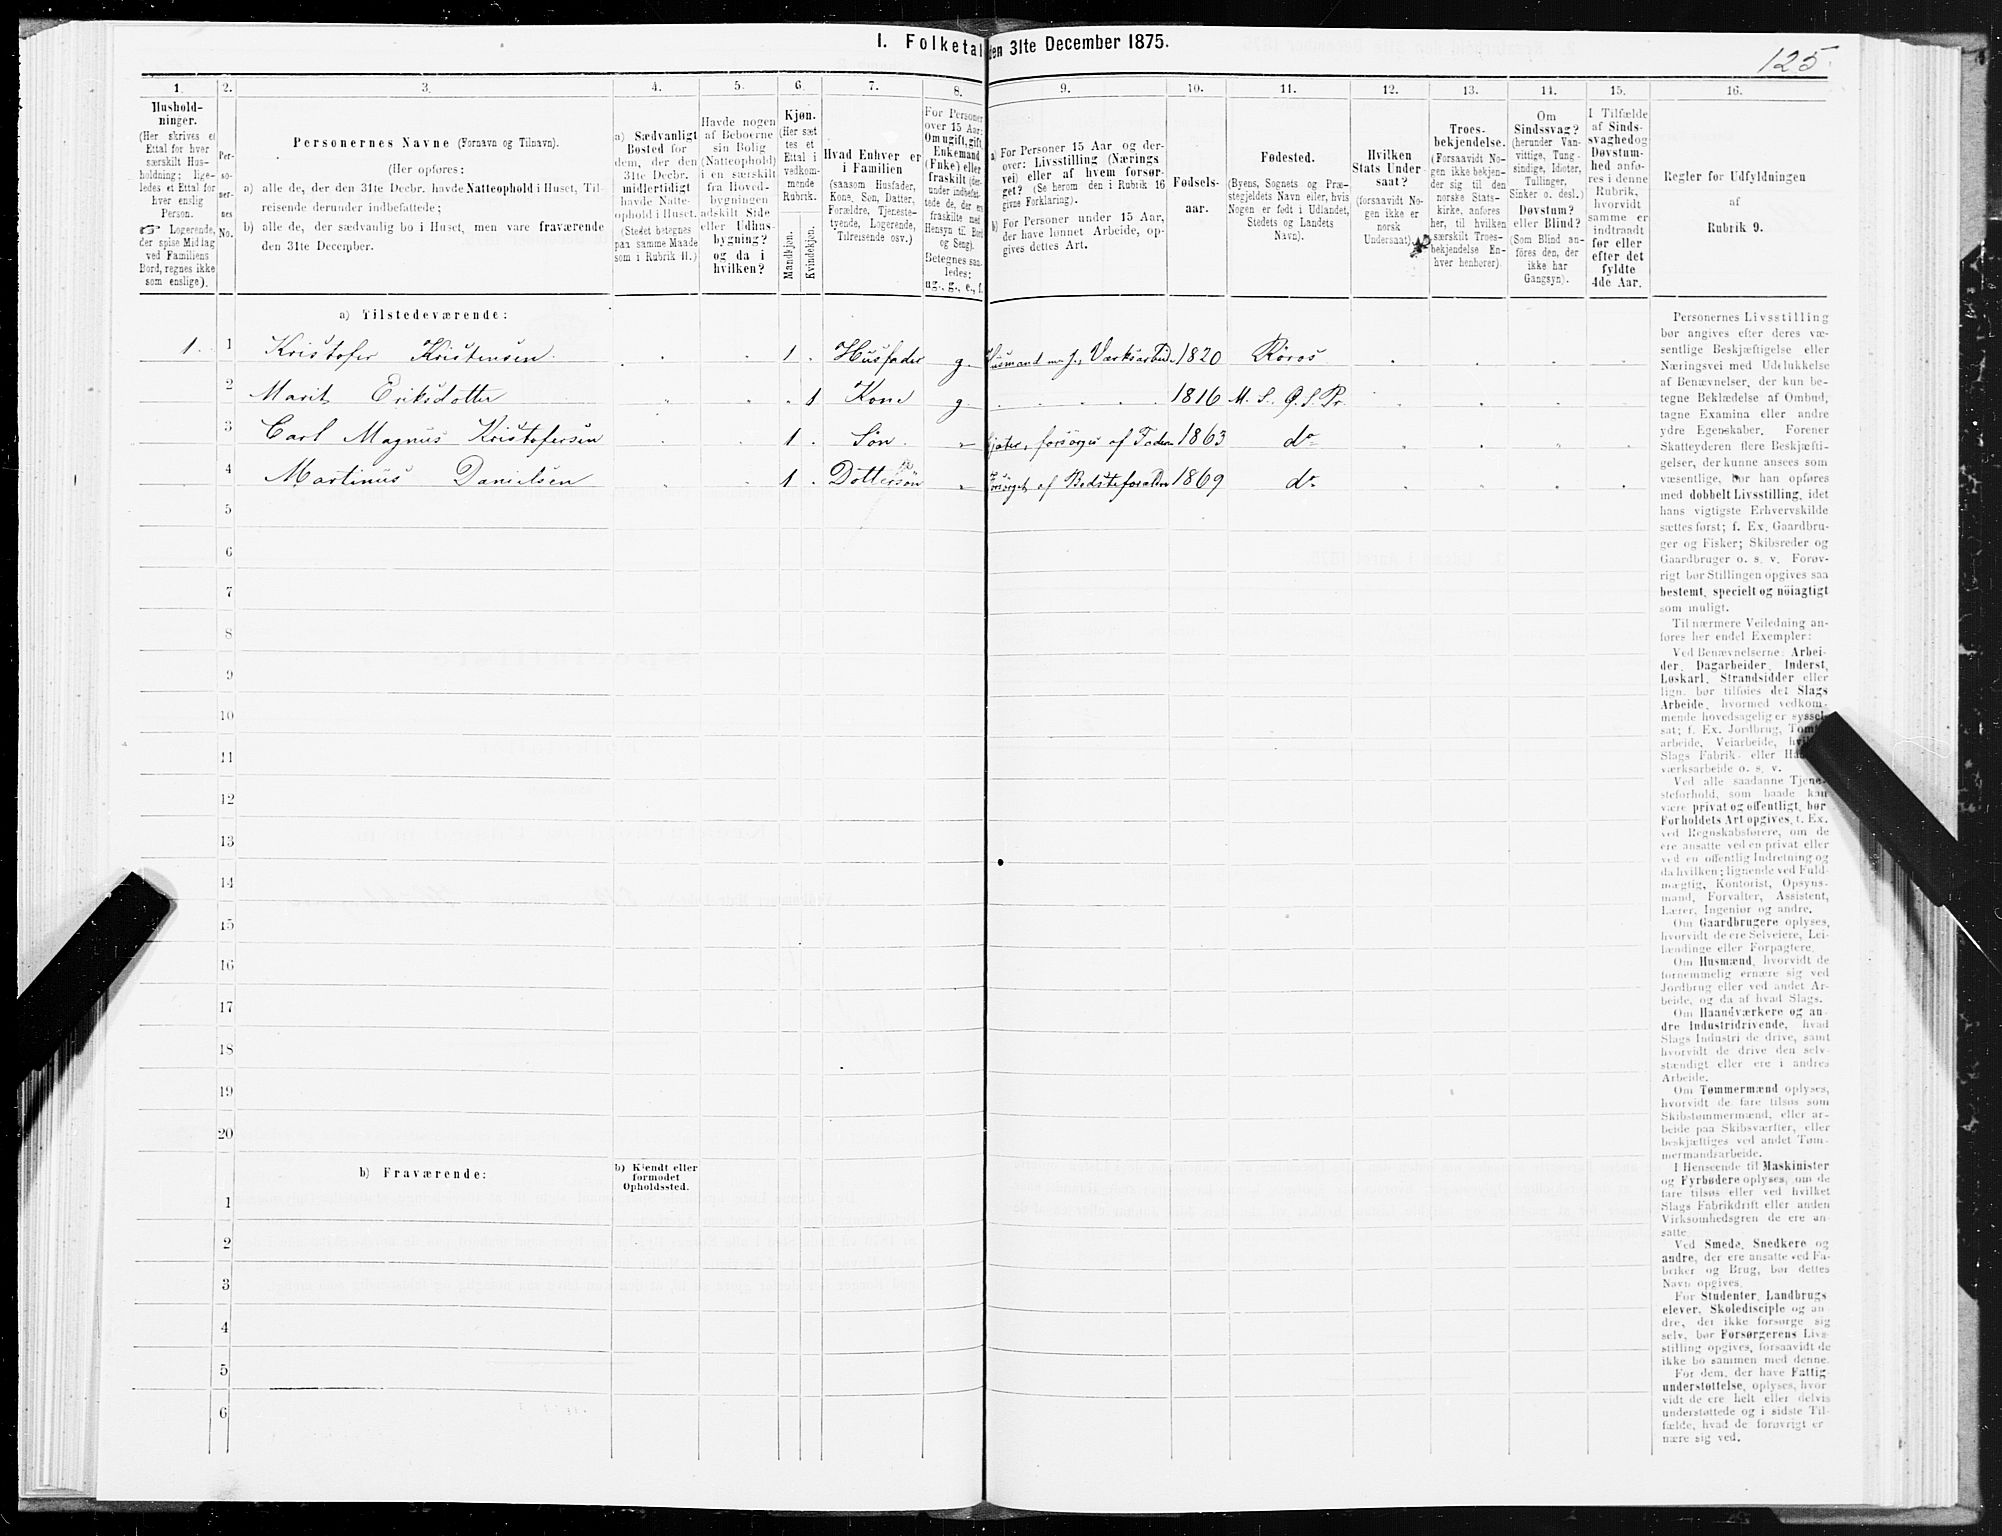 I. Folketal den 31te December 1875.
125.
1. 2. 3. 4. 5. 6. 7. 8. 9. 10. 11. 12. 13. 14. 15. 16.
Hushold-
ninger.
(Her skrives et
Ettal for hver
særskilt Hus-
holdning; lige-
ledes et Ettal for
hver enslig
Person.
☞ Logerende,
der spise Middag
ved Familiens
Bord, regnes ikke
som enslige).
Per-
so-
ner-
nes
No.
Personernes Navne (Fornavn og Tilnavn).
(Her opføres:
a) alle de, der den 31te Decbr. havde Natteophold i Huset, Til-
reisende derunder indbefattede;
b) alle de, der sædvanlig bo i Huset, men vare fraværende
den 31te December.
a) Sædvanligt
Bosted for
dem, der den
31te Decbr.
midlertidigt
havde Natte-
ophold i Huset.
(Stedet betegnes
paa samme Maade
som i Rubrik 11.)
Havde nogen
af Beboerne
sin Bolig
(Natteophold)
i en særskilt
fra Hoved-
bygningen
adskilt Side
eller Udhus-
bygning?
og da i
hvilken?
Kjøn.
(Her sæt
tes et
Ettal i
vedkom-
mende
Rubrik.
Mandkjøn.
Kvindekjøn.
Hvad Enhver er
i Familien
(saasom Husfader,
Kone, Søn, Datter,
Forældre, Tjeneste-
tyende, Logerende,
Tilreisende osv.)
For Personer
over 15 Aar:
Om ugift, gift,
Enkemand
(Enke) eller
fraskilt (der-
under indbefat-
tede de, der ere
fraskilte med
Hensyn til Bord
og Seng).
Betegnes saa-
ledes:
ug., g., e., f.
a) For Personer 15 Aar og der-
over: Livsstilling (Nærings
vei) eller af hvem forsør-
get? (Se herom den i Rubrik 16
givne Forklaring).
b) For Personer under 15 Aar,
der have lønnet Arbeide, op-
gives dettes Art.
Fødsels-
aar.
Fødested.
(Byens, Sognets og Præ-
stegjeldets Navn eller, hvis
Nogen er født i Udlandet,
Stedets og Landets
Navn).
Hvilken
Stats Under
saat?
(forsaavidt No-
gen ikke er
norsk
Undersaat).
Troes-
bekjendelse.
(Forsaavidt No-
gen ikke bekjen-
der sig til den
norske Stats-
kirke, anføres
her, til hvilken
særskilt Troes-
bekjendelse En-
hver henhører).
Om
Sindssvag?
(herunder Van-
vittige, Tung-
sindige, Idioter,
Tullinger,
Sinker o. desl.)
Døvstum?
eller Blind?
(Som Blind an-
føres den, der
ikke har
Gangsyn).
I Tilfælde
af Sinds-
svaghed og
Døvstum-
hed anfø-
res i denne
Rubrik,
hvorvidt
samme er
indtraadt
før eller
efter det
fyldte
4de Aar.
Regler for Udfyldningen
af
Rubrik 9.
a) Tilstedeværende:
1. 1 Kristofer Kristensen 1 Husfader g. Husmand m. J., Værksarbeid. 1820 Röros
2 Marit Eriksdotter 1 Kone g 1816 M. S. Ø. S. Pr.
3 Carl Magnus Kristofersen 1 Søn forsörges af Faderen 1863 do
4 Martinus Danielsen 1 Dottersøn Forsörget af Bedsteforældre 1869 do
5
6
7
8
9
10
11
12
13
14
15
16
17
18
19
20
b) Fraværende:
b) Kjendt eller
formodet
Opholdssted.
1
2
3
4
5
6
Personernes Livsstilling
bør angives efter deres væ-
sentlige Beskjæftigelse eller
Næringsvei med Udelukkelse
af Benævnelser, der kun be-
tegne Beklædelse af Ombud,
tagne Examina eller andre
ydre Egenskaber. Forener
Skatteyderen flere Beskjæfti-
gelser, der kunne ansees som
væsentlige, bør han opføres
med dobbelt Livsstilling, idet
hans vigtigste Erhvervskilde
sættes først; f. Ex. Gaardbru-
ger og Fisker; Skibsreder og
Gaardbruger o. s. v. Forøv-
rigt bør Stillingen opgives saa
bestemt, specielt og nöiagtigt
som muligt.
Til nærmere Veiledning an-
føres her endel Exempler:
Ved Benævnelserne: Arbei-
der, Dagarbeider, Inderst,
Løskarl, Strandsidder eller
lign. bør tilføies det Slags
Arbeide, hvormed vedkom-
mende hovedsagelig er syssel-
sat; f. Ex. Jordbrug, Tomt-
arbeide, Veiarbeide,
Slags Fabrik- eller
værksarbeide o. s. v.
Ved alle saadanne Tjene-
steforhold, som baade kan
være privat og offentligt, bør
Forholdets Art opgives, t. Ex.
ved Regnskabsførere, om de
ere ansatte ved en privat eller
ved en offentlig Indretning og
da hvilken; lignende ved Fuld-
mægtig, Kontorist, Opsyns-
mand, Forvalter, Assistent,
Lærer, Ingeniør og andre.
Om Gaardbrugere oplyses,
hvorvidt de ere Selveiere, Lei-
lændinge eller Forpagtere.
Om Husmænd, hvorvidt de
fornemmelig ernære sig ved
Jordbrug eller ved andet Ar-
beide, og da af hvad Slags.
Om Haandværkere og an-
dre Industridrivende, hvad
Slags Industri de drive, samt
hvorvidt de drive den selv-
stændigt eller ere i andres
Arbeide.
Om Tømmermænd oplyses,
hvorvidt de fare tilsøs som
Skibstømmermænd, eller ar-
beide paa Skibsværfter, eller
beskjæftiges ved andet Tøm-
mermandsarbeide.
I Henseende til Maskinister
og Fyrbødere oplyses, om de
fare tilsøs eller ved hvilket
Slags Fabrikdrift eller anden
Virksomhedsgren de ere an-
satte.
Ved Smede, Snedkere og
andre, der ere ansatte ved Fa-
briker og Brug, bør dettes
Navn opgives.
For Studenter, Landbrugs
elever, Skoledisciple og an-
dre, der ikke forsørge sig
selv, bør Forsørgerens Livs-
stilling opgives, forsaavidt de
ikke bo sammen med denne.
For dem, der have Fattig
understøttelse, oplyses, hvor
vidt de ere helt eller delvis
understøttede og i sidste Til-
fælde, hvad de forøvrigt er
nære sig ved.